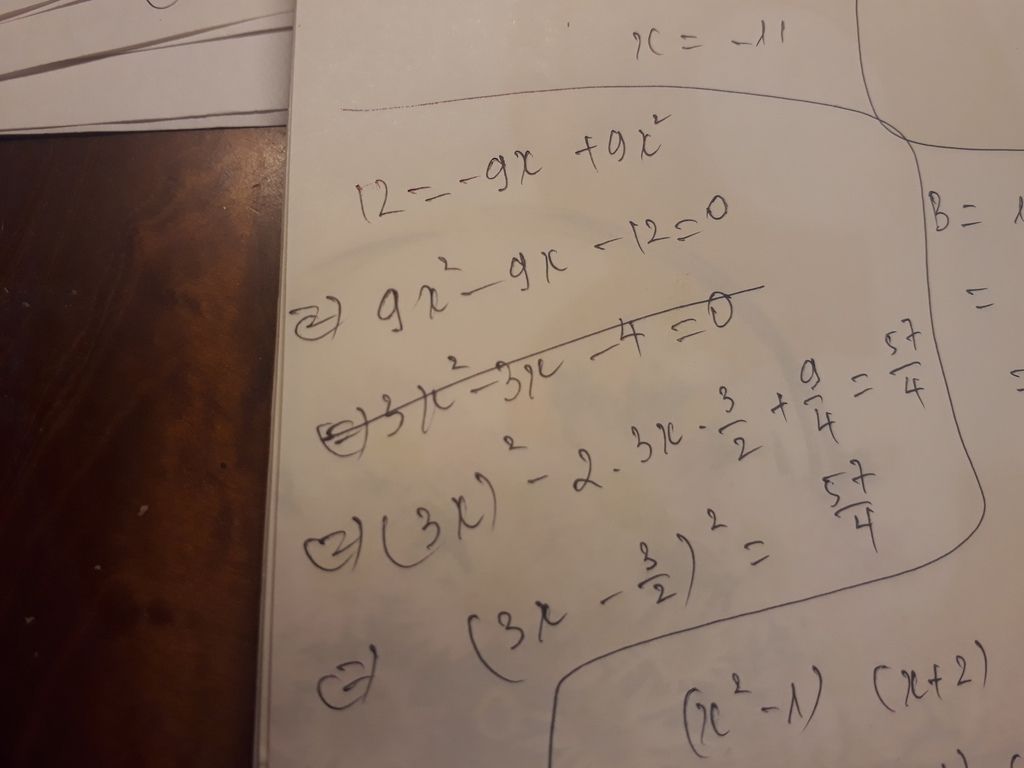 x = -11
12 = -9x + 9x²
⇔ 9x² - 9x - 12 = 0
⇔ 3x² - 3x - 4 = 0
⇔ (3x)² - 2 · 3x · 3/2 + 9/4 = 57/4
⇔ (3x - 3/2)² = 57/4
(x² - 1) (x + 2)
B =
=
=